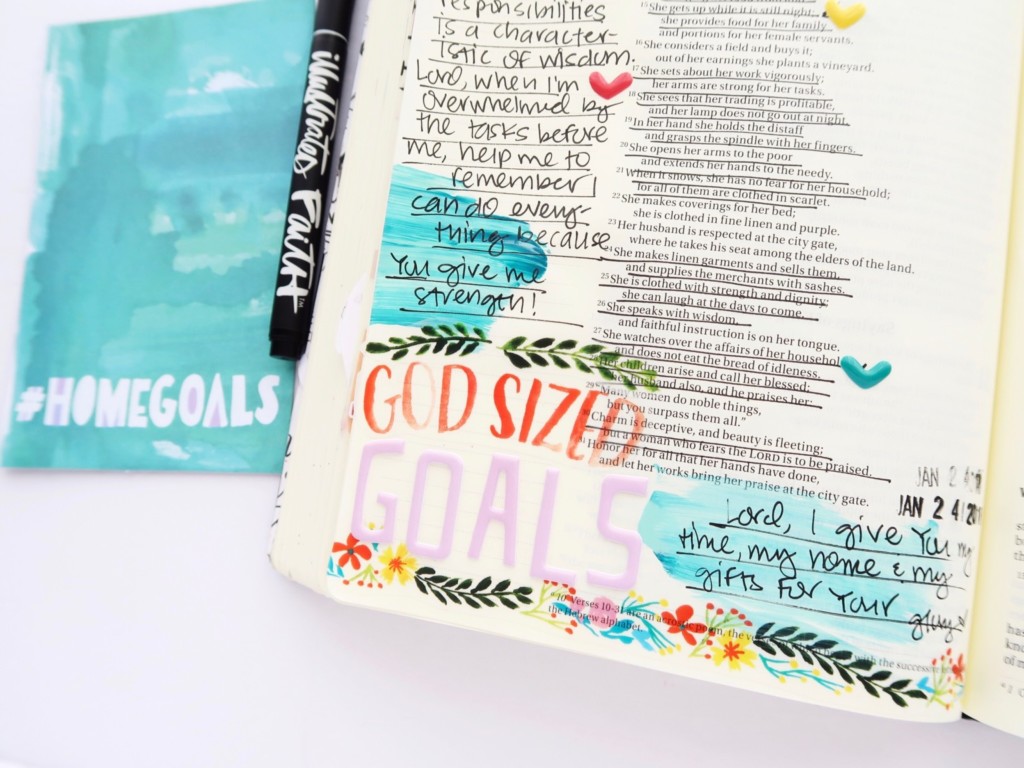 #HOMEGOALS
illustrated
FAITH
TM
responsibilities
is a character-
istic of wisdom.
Lord, when I'm
overwhelmed by
the tasks before
me, help me to
remember I
can do every-
thing because
You give me
strength!
GOD SIZED
GOALS
15 She gets up while it is still night;
she provides food for her family
and portions for her female servants.
16 She considers a field and buys it;
out of her earnings she plants a vineyard.
17 She sets about her work vigorously;
her arms are strong for her tasks.
18 She sees that her trading is profitable,
and her lamp does not go out at night.
19 In her hand she holds the distaff
and grasps the spindle with her fingers.
20 She opens her arms to the poor
and extends her hands to the needy.
21 When it snows, she has no fear for her household;
for all of them are clothed in scarlet.
22 She makes coverings for her bed;
she is clothed in fine linen and purple.
23 Her husband is respected at the city gate,
where he takes his seat among the elders of the land.
24 She makes linen garments and sells them,
and supplies the merchants with sashes.
25 She is clothed with strength and dignity;
she can laugh at the days to come.
26 She speaks with wisdom,
and faithful instruction is on her tongue.
27 She watches over the affairs of her household
and does not eat the bread of idleness.
Her children arise and call her blessed;
husband also, and he praises her:
29 "Many women do noble things,
but you surpass them all."
Charm is deceptive, and beauty is fleeting;
but a woman who fears the LORD is to be praised.
31 Honor her for all that her hands have done,
and let her works bring her praise at the city gate.
JAN 2 4
JAN 2 4 20
Lord, I give You my
time, my home & my
gifts for Your glory!
a 10 Verses 10-31 are an acrostic poem, the
with the successive
the Hebrew alphabet.